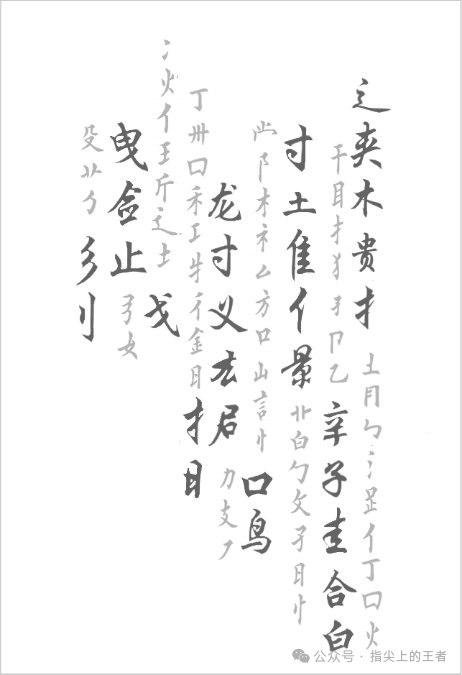 辶夹木贵扌土冃勹氵亻丁口火
干目扌犭卩乙辛子圭合白
寸土隹亻景白勹攵子日忄
阝木礻厶方口山言忄口鸟
龙寸义去君力支丿
丁卌口禾工牜彳金目扌目
冫火亻王斤辶土戈
曳佥止弓女
殳彡刂
公众号 · 指尖上的王者